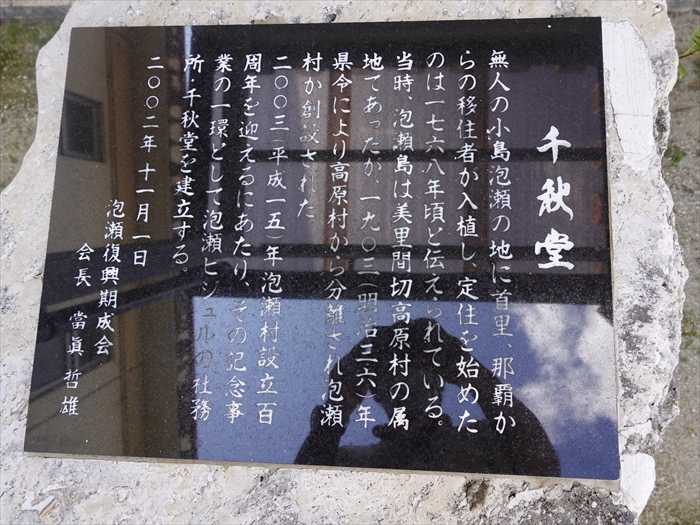 千秋堂
無人の小島泡瀬の地に首里、那覇か
らの移住者が入植し、定住を始めた
のは一七六八年頃と伝えられている。
当時、泡瀬島は美里間切高原村の属
地であったが、一九〇三(明治三六)年
県令により高原村から分離され泡瀬
村が創設された
二〇〇三(平成一五)年泡瀬村設立百
周年を迎えるにあたり、その記念事
業の一環として泡瀬ビジュルの社務
所・千秋堂を建立する。
二〇〇二年十一月一日
泡瀬復興期成会
会長 當眞哲雄